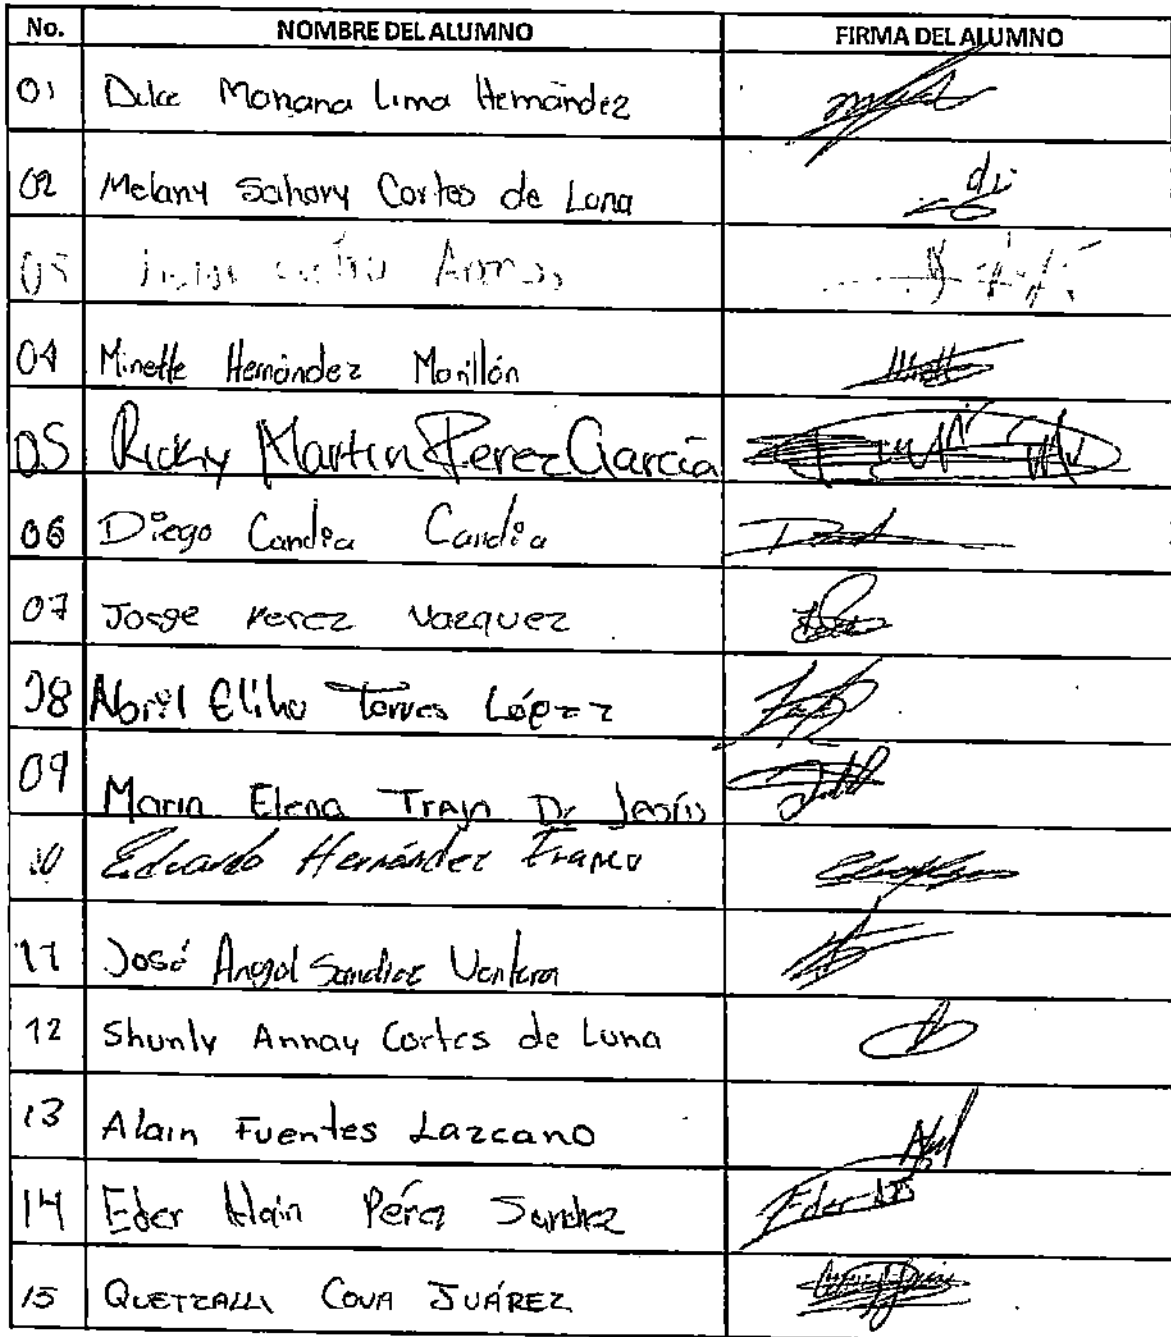 No. NOMBRE DEL ALUMNO FIRMA DEL ALUMNO
01 Dulce Mariana Lima Hernández
02 Melany Sahory Cortes de Luna
04 Minette Hernández Morillón
05 Ricky Martin Perez García
06 Diego Candia Candia
07 Jorge Perez Vazquez
08 Abril Elihu Torres López
09 Maria Elena Trejo De Jesús
10 Eduardo Hernández Franco
11 José Angel Sanchez Ventura
12 Shunly Annay Cortes de Luna
13 Alain Fuentes Lazcano
14 Eder Alain Pérez Sanchez Eder
15 QUETZALLI COVA JUÁREZ